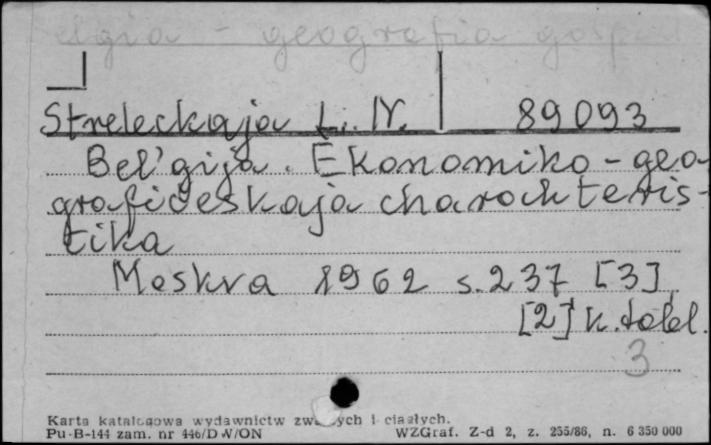 Belgia - geografia gospod
Streleckaja L. N. 89093
Bel'gija. Ekonomiko-geo-
grafičeskaja charakteris-
tika
Moskva 1962 s. 237 [3]
[2] k. tabl.
3
Karta katalogowa wydawnictw zwartych i ciągłych.
Pu-B-144 zam. nr 446/D W/ON WZGraf. Z-d 2, z. 255/86, n. 6 350 000